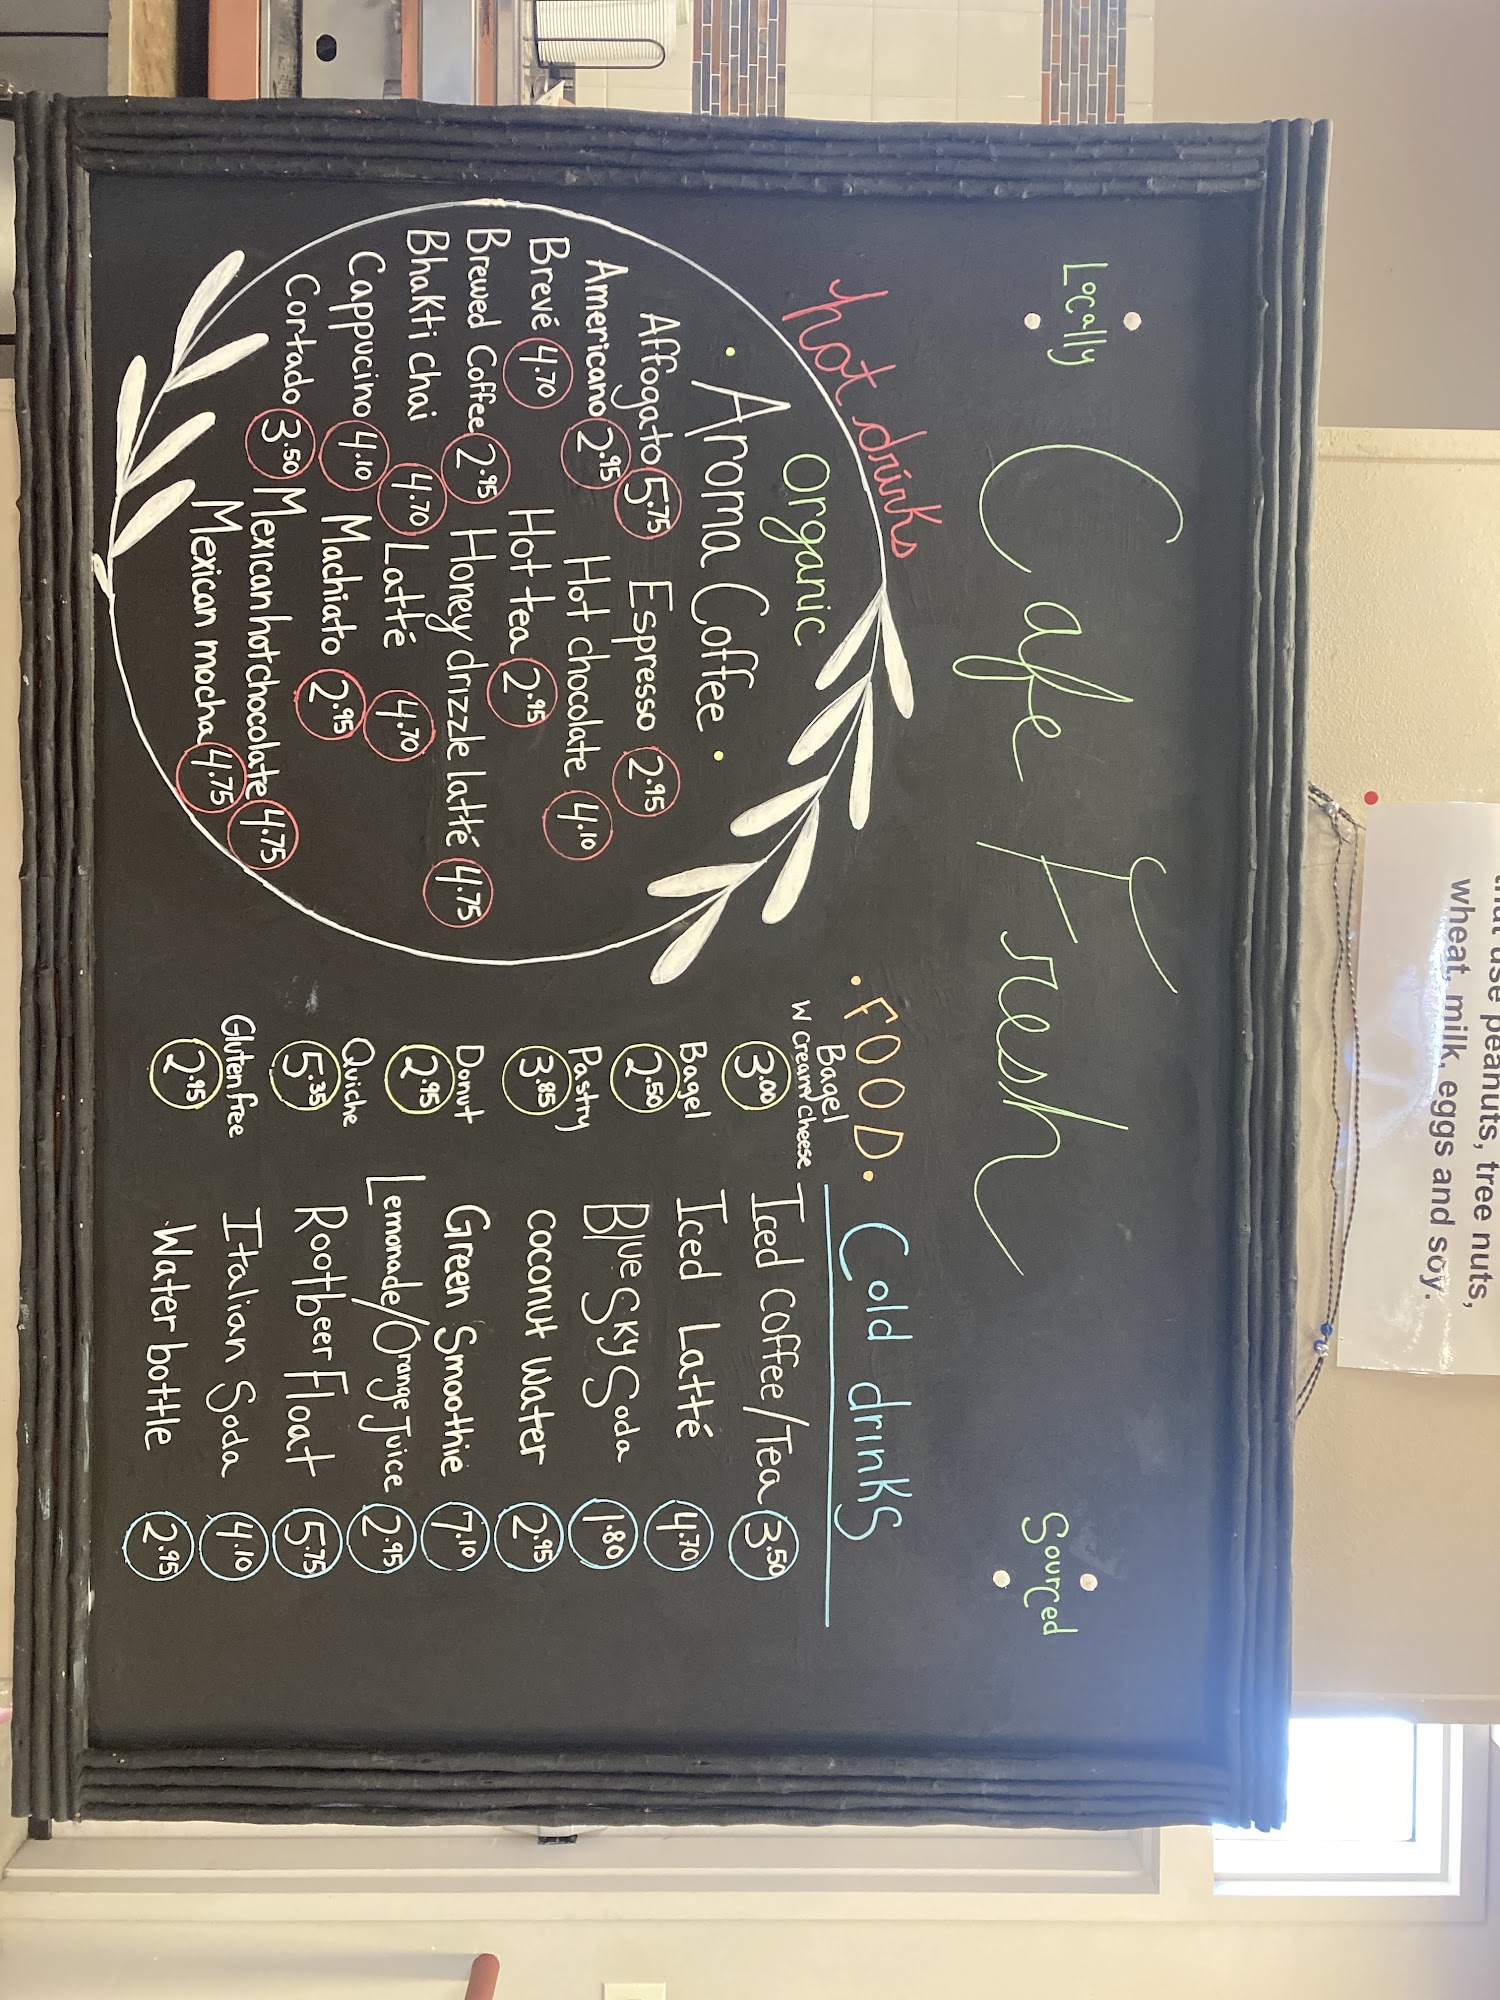 Locally
Sourced
Cafe Fresh
hot drinks
Organic
· Aroma Coffee ·
Affogato 5.75
Americano 2.95
Brevé 4.70
Brewed Coffee 2.95
Bhakti chai 4.70
Cappucino 4.10
Cortado 3.50
Espresso 2.95
Hot chocolate 4.10
Hot tea 2.95
Honey drizzle latté 4.75
Latté 4.70
Machiato 2.95
Mexican hot chocolate 4.75
Mexican mocha 4.75
· FOOD ·
Bagel
W cream cheese
3.00
Bagel
2.50
Pastry
3.85
Donut
2.95
Quiche
5.35
Gluten free
2.95
Cold drinks
Iced Coffee/Tea 3.50
Iced Latté 4.70
Blue Sky Soda 1.80
Coconut Water 2.95
Green Smoothie 7.10
Lemonade/Orange Juice 2.95
Rootbeer Float 5.75
Italian Soda 4.10
Water bottle 2.95
use peanuts, tree nuts,
wheat, milk, eggs and soy.